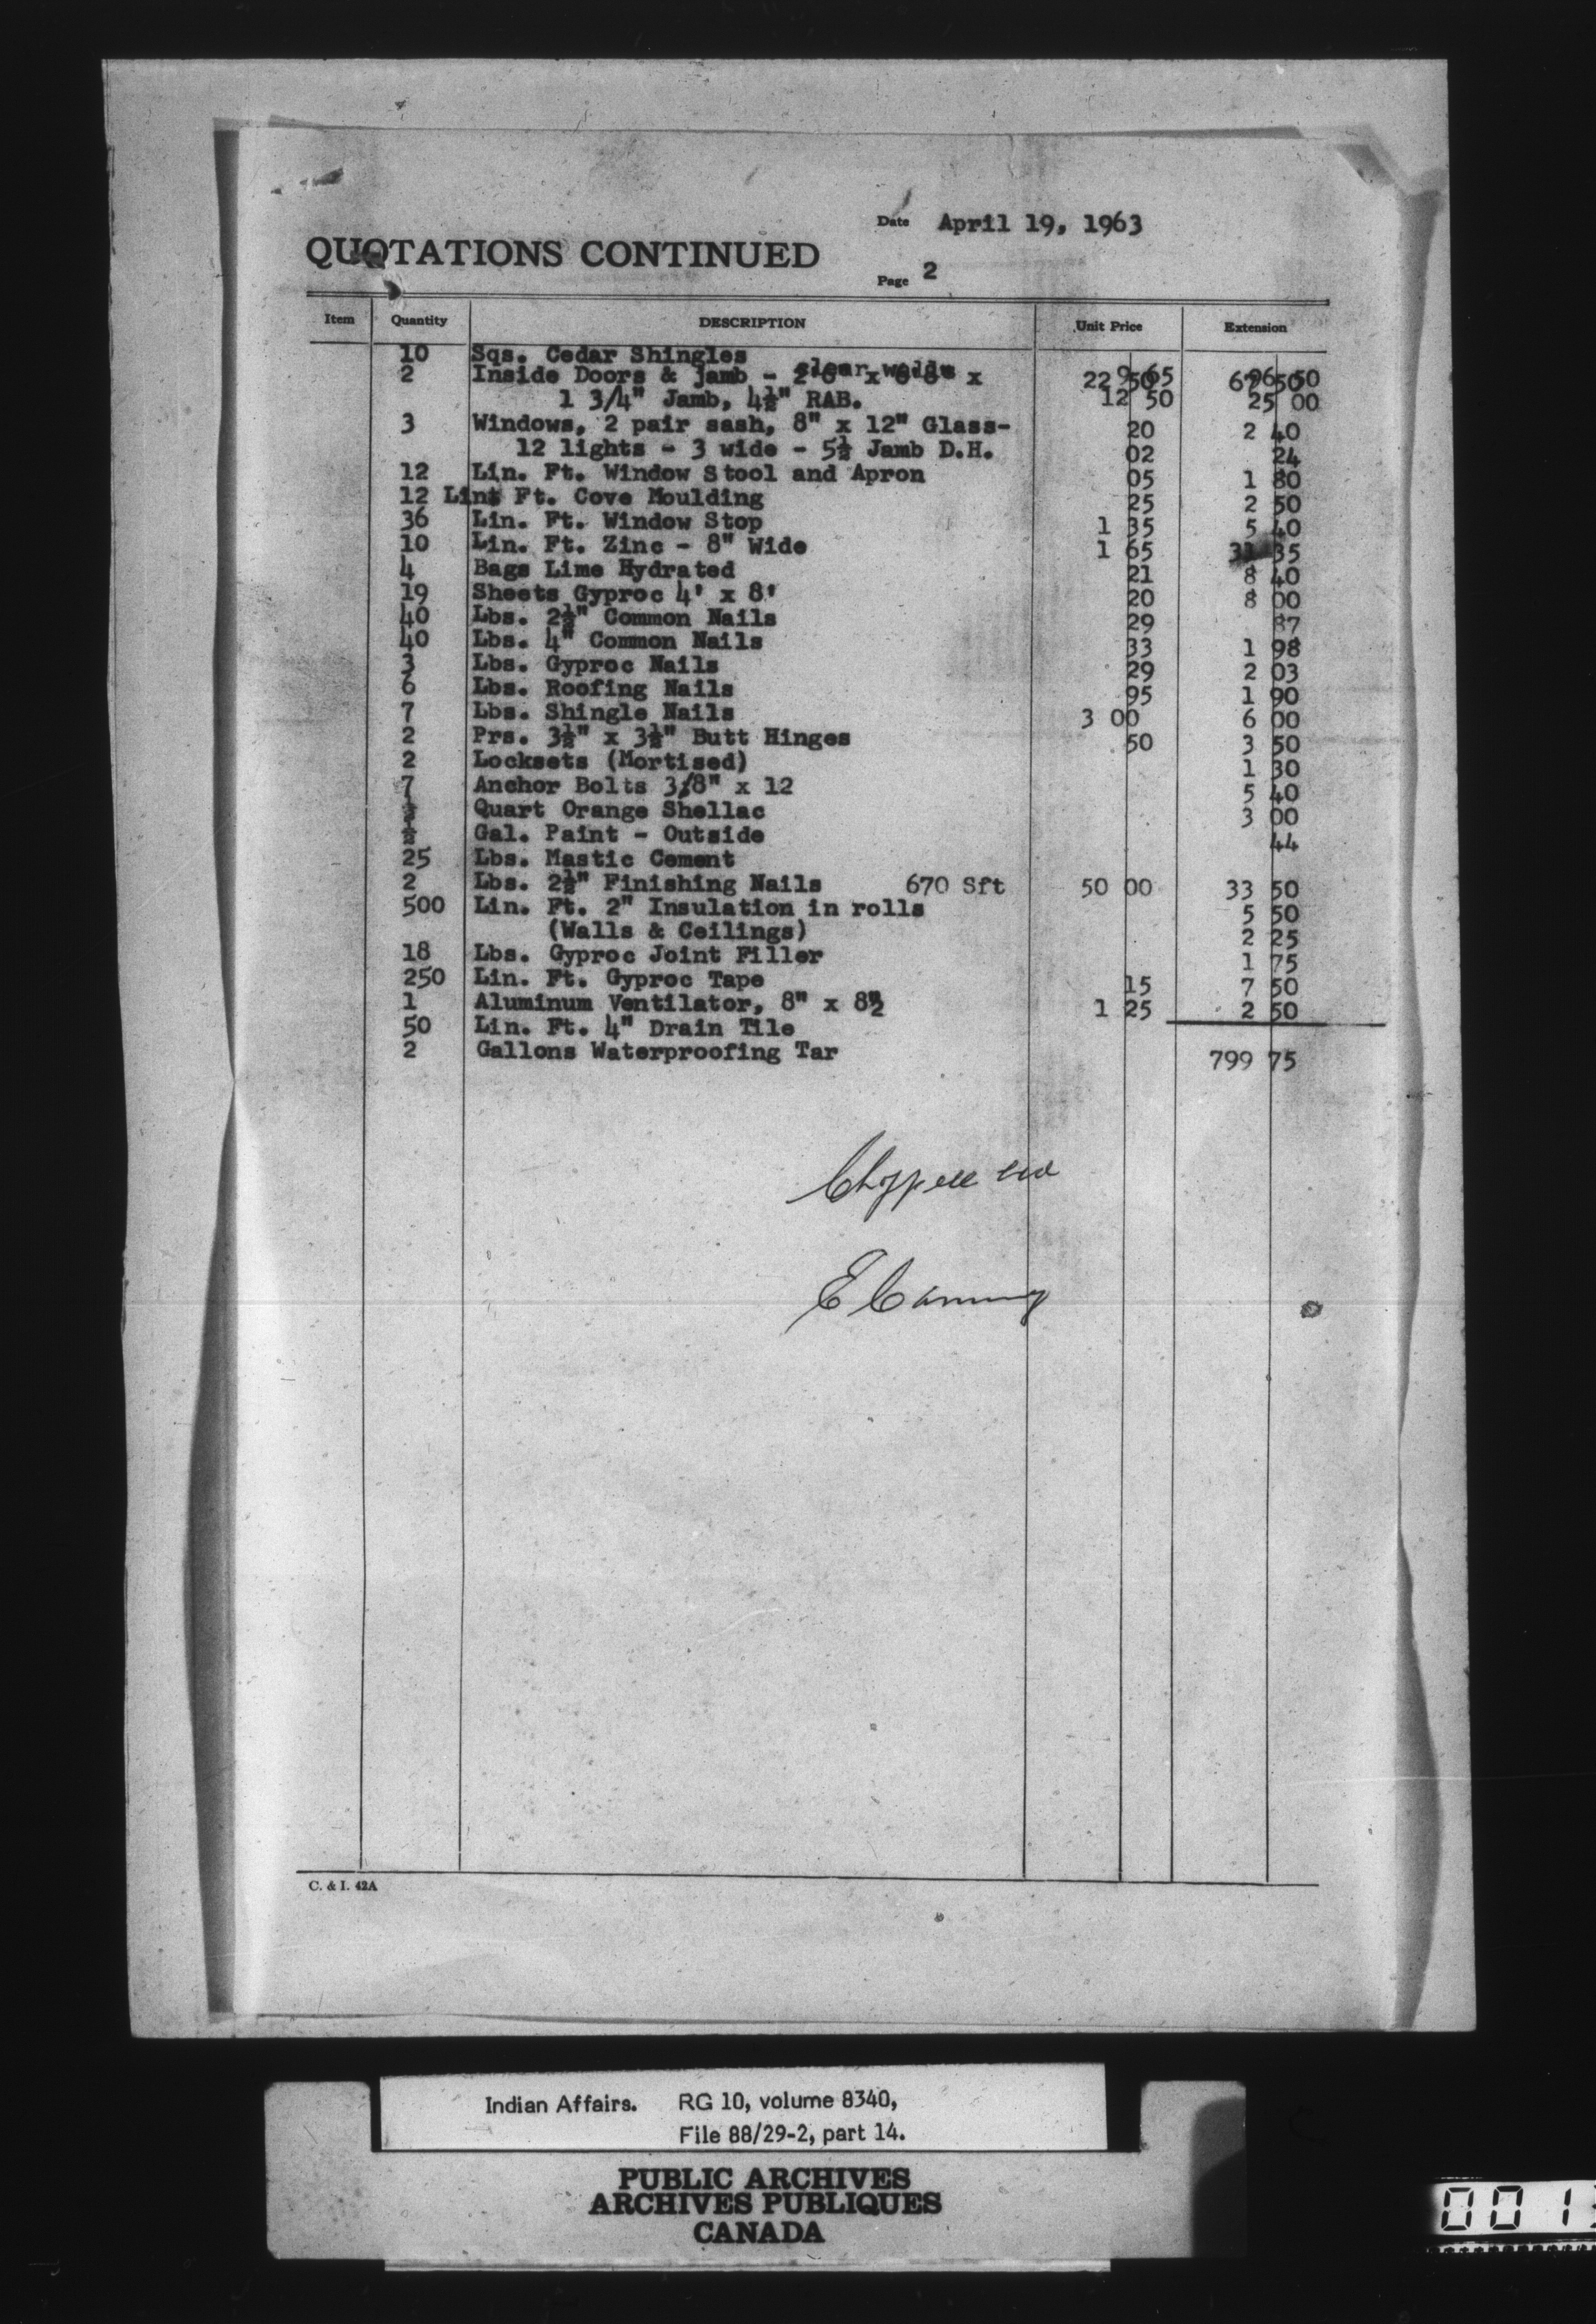 Date April 19, 1963
QUOTATIONS CONTINUED
Page 2
Item Quantity DESCRIPTION Unit Price Extension
10 Sqs. Cedar Shingles clear 9 65 96 50
2 Inside Doors & jamb - x 22 50 67 50
1 3/4" Jamb, 4½" RAB. 12 50 25 00
3 Windows, 2 pair sash, 8" x 12" Glass- 20 2 40
12 lights - 3 wide - 5½ Jamb D.H. 02 24
12 Lin. Ft. Window Stool and Apron 05 1 80
12 Lin. Ft. Cove Moulding 25 2 50
36 Lin. Ft. Window Stop 1 35 5 40
10 Lin. Ft. Zinc - 8" Wide 1 65 31 35
4 Bags Lime Hydrated 21 8 40
19 Sheets Gyproc 4' x 8' 20 8 00
40 Lbs. 2½" Common Nails 29 87
40 Lbs. 4" Common Nails 33 1 98
3 Lbs. Gyproc Nails 29 2 03
6 Lbs. Roofing Nails 95 1 90
7 Lbs. Shingle Nails 3 00 6 00
2 Prs. 3½" x 3½" Butt Hinges 50 3 50
2 Locksets (Mortised) 1 30
7 Anchor Bolts 3/8" x 12 5 40
½ Quart Orange Shellac 3 00
½ Gal. Paint - Outside 44
25 Lbs. Mastic Cement
2 Lbs. 2½" Finishing Nails 670 Sft 50 00 33 50
500 Lin. Ft. 2" Insulation in rolls 5 50
(Walls & Ceilings) 2 25
18 Lbs. Gyproc Joint Filler 1 75
250 Lin. Ft. Gyproc Tape 15 7 50
1 Aluminum Ventilator, 8" x 8½ 1 25 2 50
50 Lin. Ft. 4" Drain Tile
2 Gallons Waterproofing Tar 799 75
C. & I. 42A
Indian Affairs. RG 10, volume 8340,
File 88/29-2, part 14.
PUBLIC ARCHIVES
ARCHIVES PUBLIQUES
CANADA
001